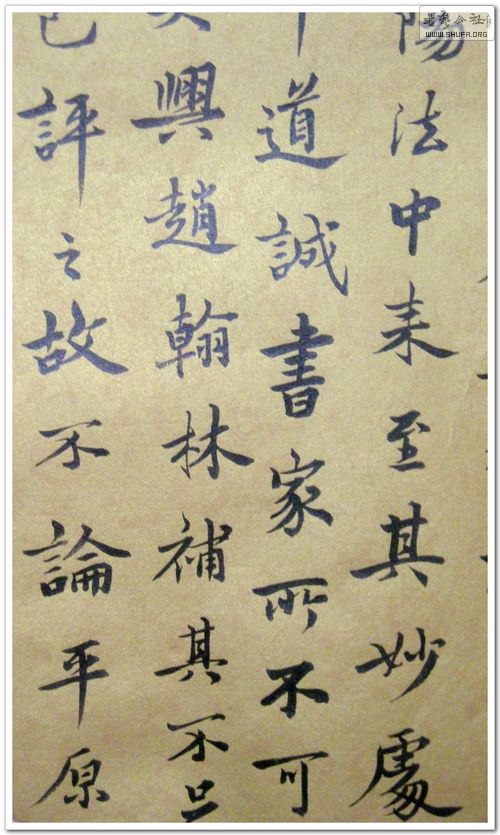 陽法中来至其妙處
道誠書家所不可
興趙翰林補其不
已評之故不論平原
書藝公社
WWW.SHUFA.ORG